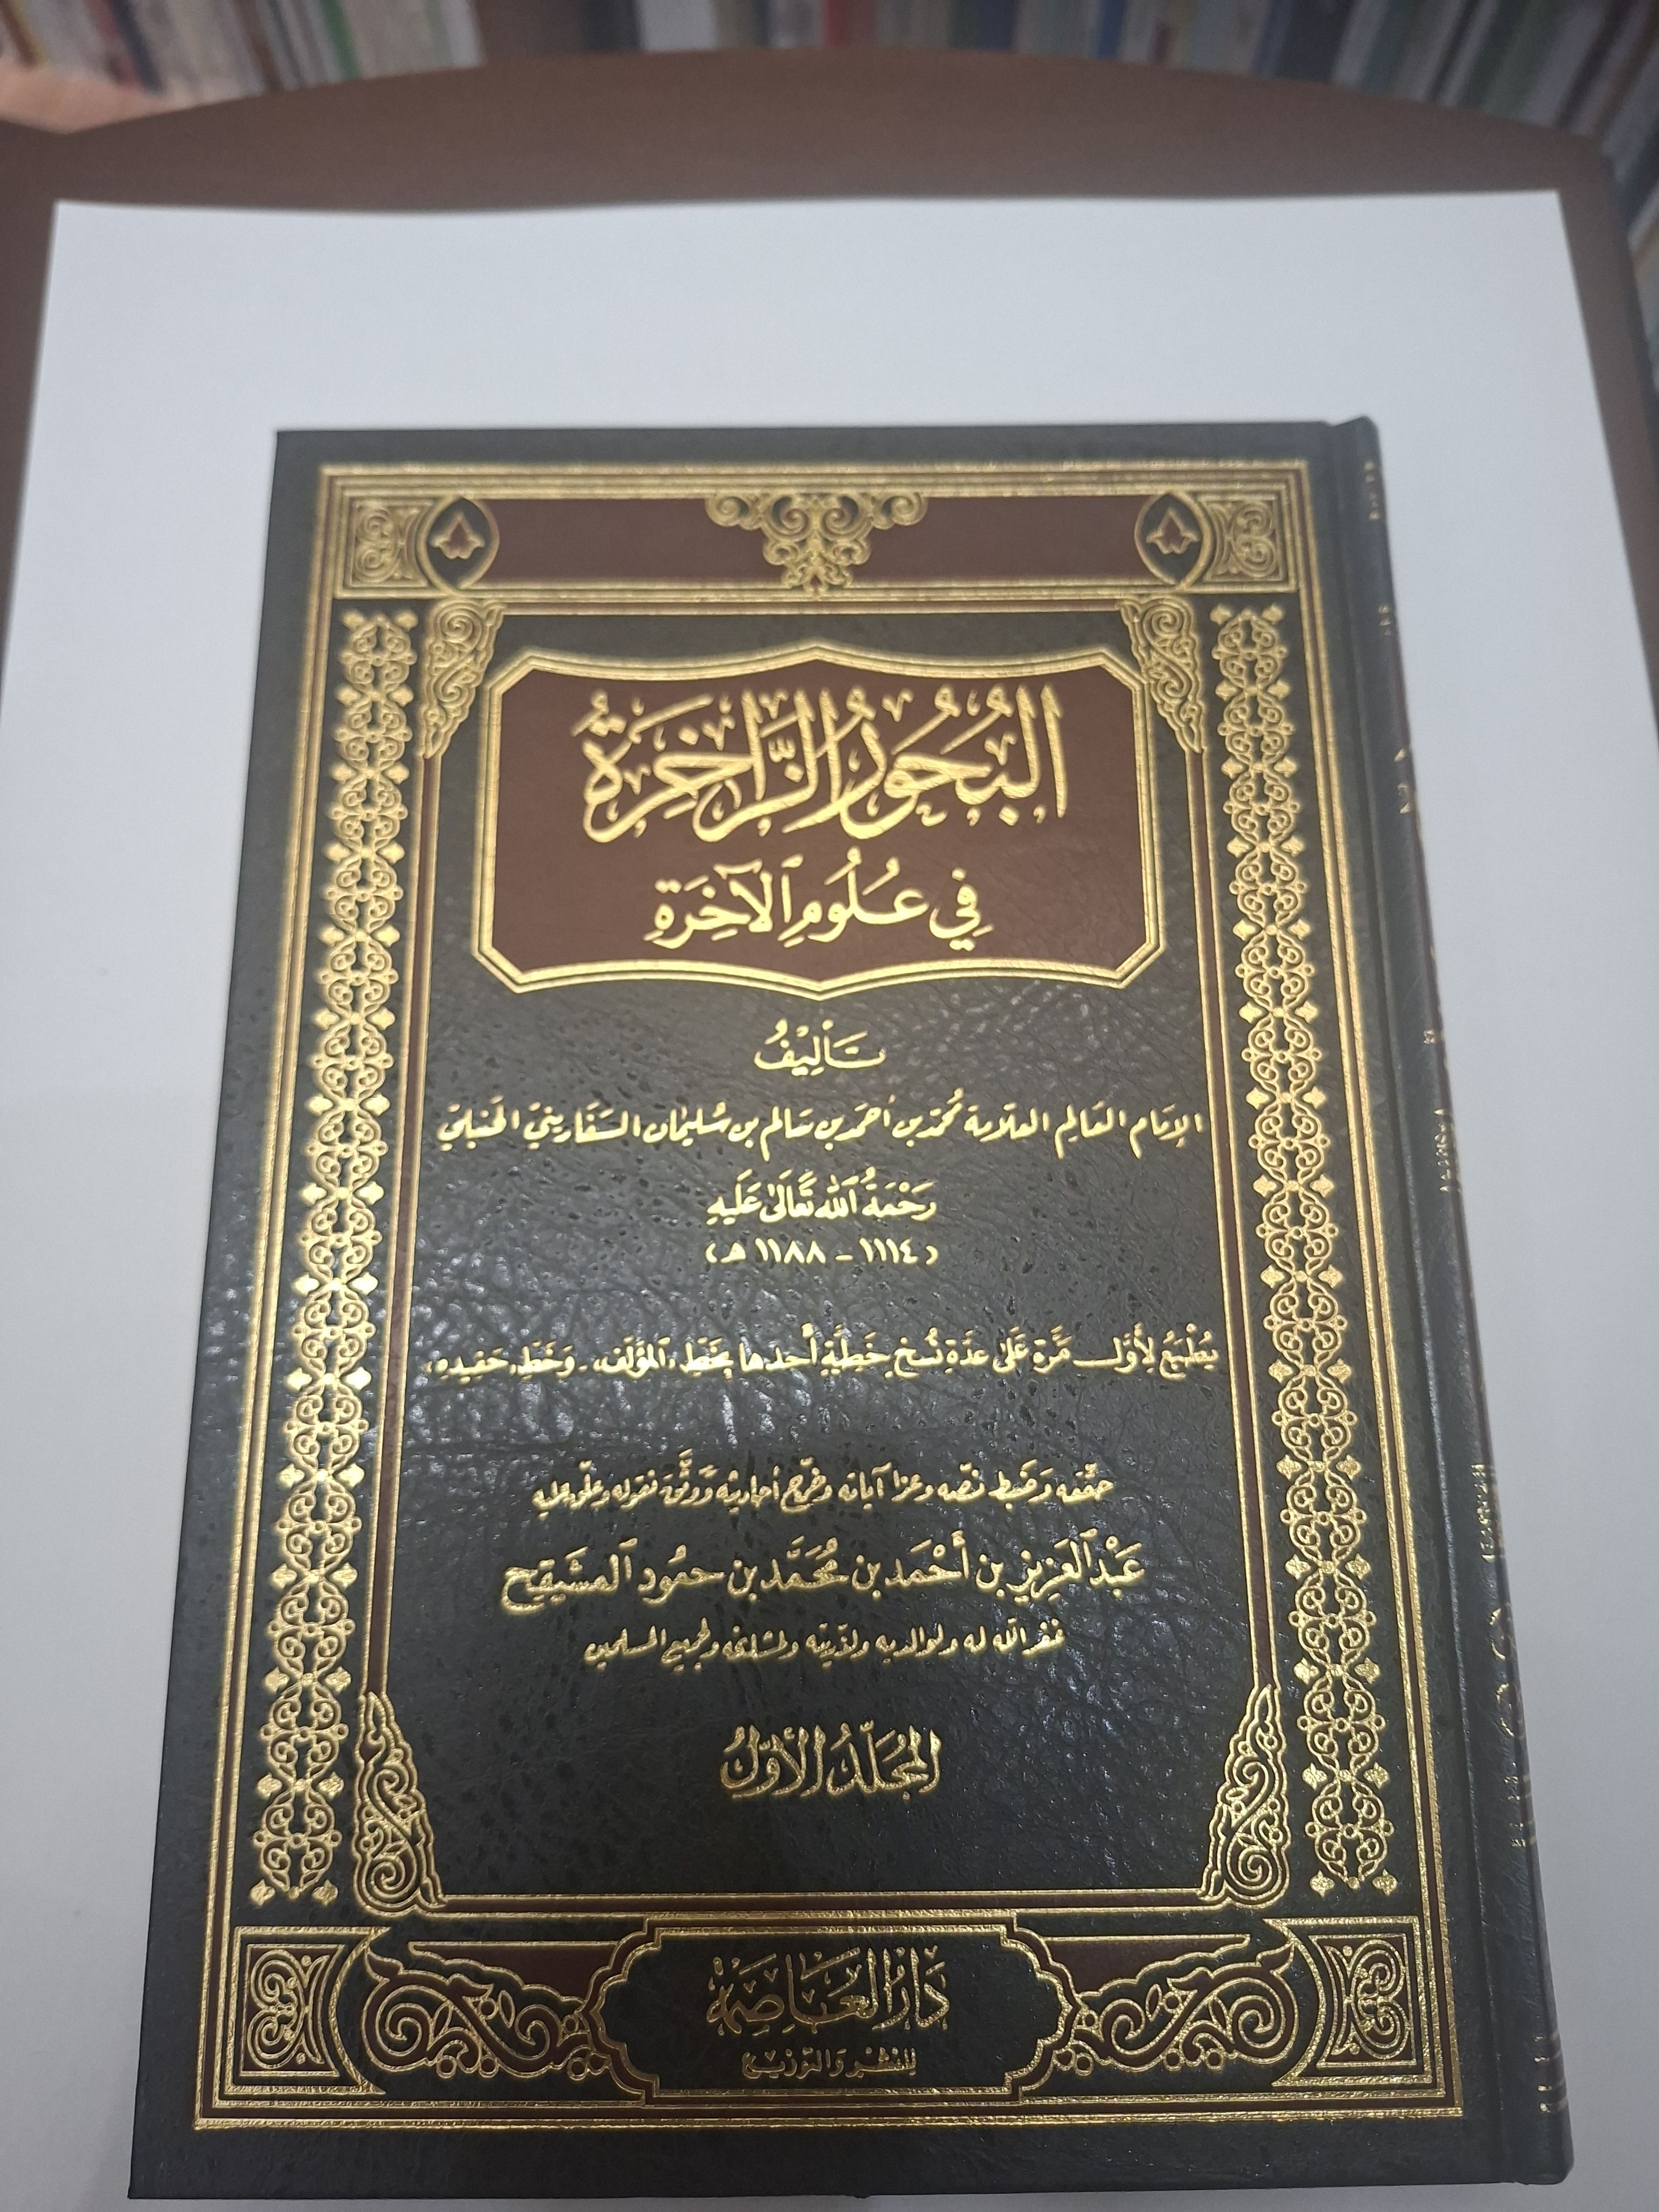 البُحُورُ الزَّاخِرَةُ
فِي عُلُومِ الآخِرَةِ
تَأْلِيْفُ
الإِمَام العَالِم العلّامة محمّد بن أحمَد بن سَالم بن سُليمَان السَّفّارينيّ الحَنبليّ
رَحْمَةُ اللهِ تَعَالَىٰ عَلَيهِ
(١١١٤ - ١١٨٨ هـ)
يُطْبَعُ لِأَوَّل مَرَّة عَلَىٰ عدَّةِ نُسَخٍ خَطِّيَّةٍ أَحدها بخَطِّ المُؤَلّف، وَخَطِّ حَفيدِهِ
حقّقه وَضَبط نصّه وعزا آياته وخرّج أحاديثه وَوَثَّق نقوله وعلّق عليه
عَبْد العَزِيز بن أَحْمَد بن مُحَمَّد بن حمُود المشَيقِح
غفر الله له ولوالديه ولذريته ولمشايخه ولجميع المسلمين
المُجَلّدُ الأَوّلُ
دَارُ العَاصِمَة
للنشر والتوزيع